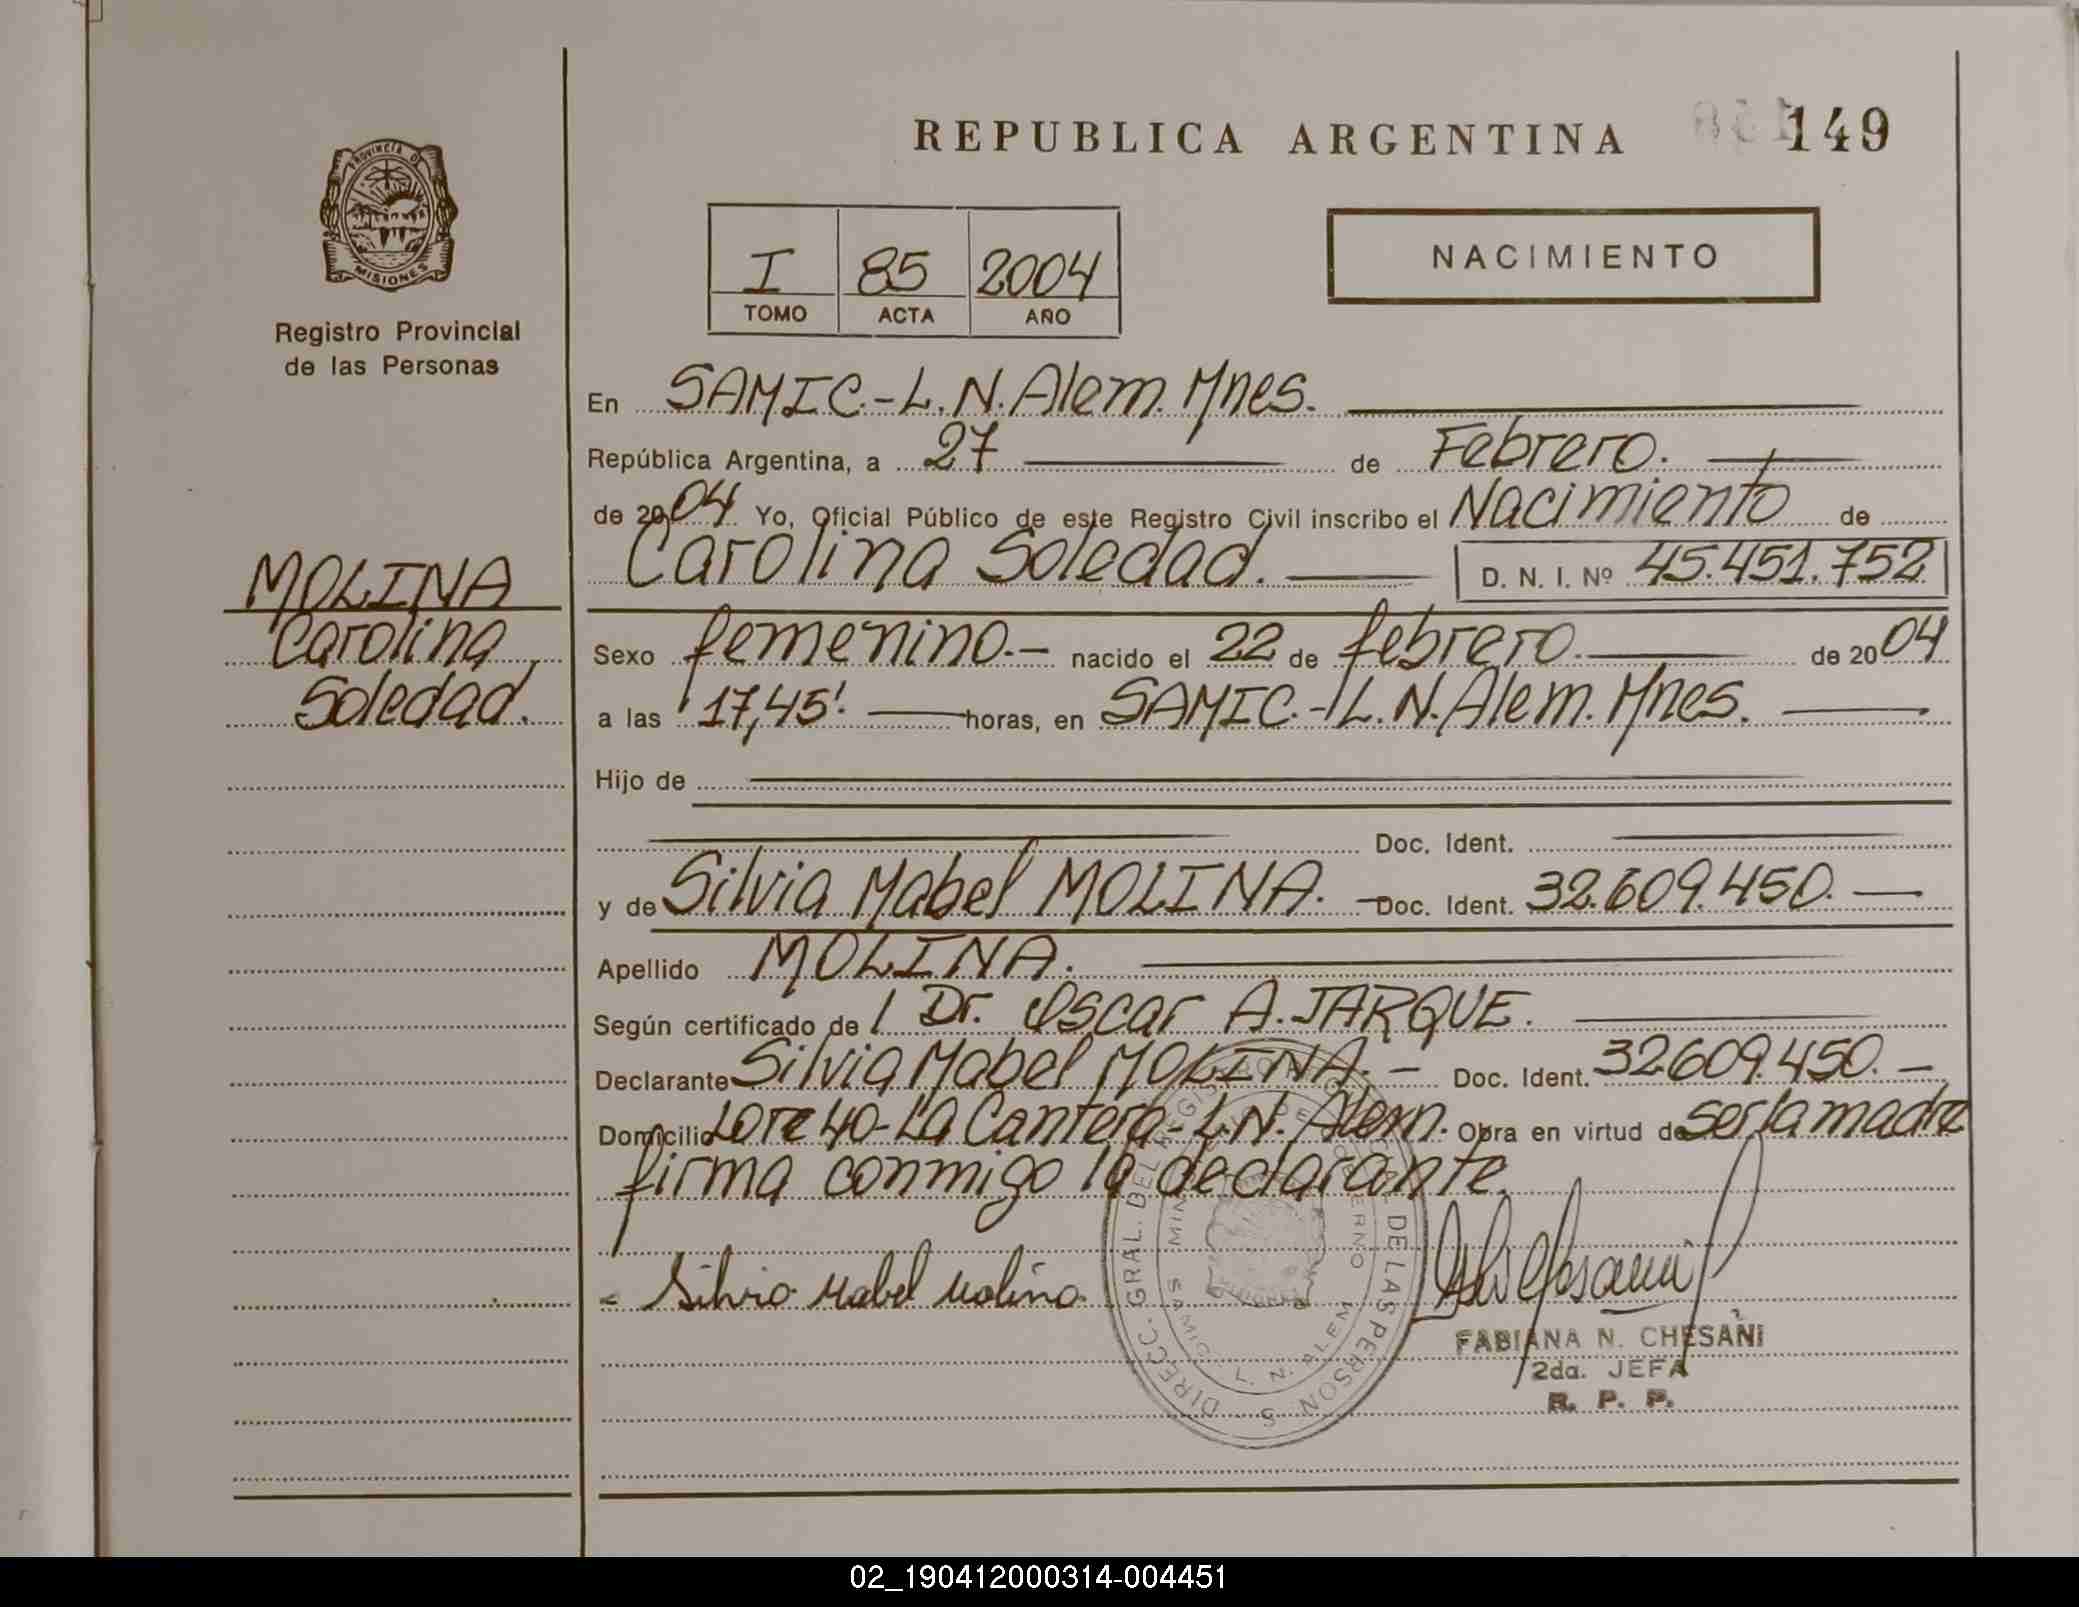 REPUBLICA ARGENTINA 149
PROVINCIA DE
MISIONES
Registro Provincial
de las Personas
I 85 2004
TOMO ACTA AÑO
NACIMIENTO
En SAMIC.-L.N.Alem.Mnes.
República Argentina, a 27 de Febrero.
de 2004 Yo, Oficial Público de este Registro Civil inscribo el Nacimiento de
Carolina Soledad. D. N. I. Nº 45.451.752
MOLINA
Carolina
Soledad.
Sexo femenino.- nacido el 22 de febrero. de 2004
a las 17,45'. horas, en SAMIC.-L.N.Alem.Mnes.
Hijo de
Doc. Ident.
y de Silvia Mabel MOLINA. Doc. Ident. 32.609.450.
Apellido MOLINA.
Según certificado de Dr. Oscar A. JARQUE.
Declarante Silvia Mabel MOLINA.- Doc. Ident. 32609.450.
Domicilio Lote 40-La Cantera-L.N. Alem. Obra en virtud de ser la madre
firma conmigo la declarante.
Silvia Mabel Molina
DIRECC. GRAL. DEL REGISTRO DE LAS PERSONAS
L. N. ALEM MISIONES
FABIANA N. CHESANI
2da. JEFA
R. P. P.
02_190412000314-004451